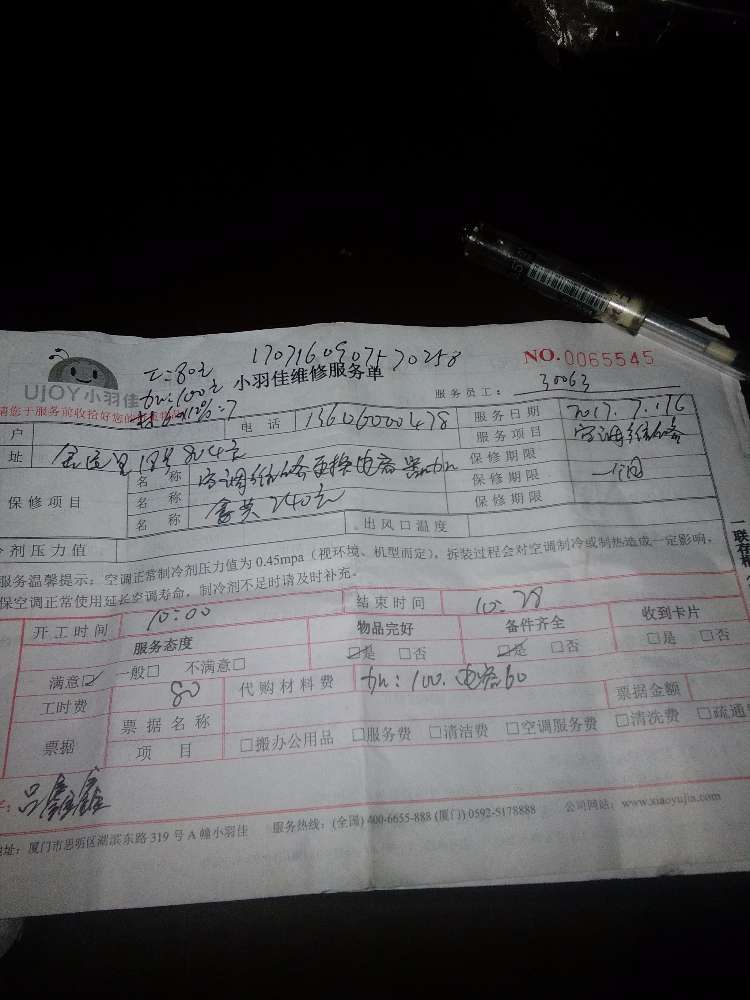 1707160907570258
NO.0065545
工:80元
UJOY小羽佳
加:100元
小羽佳维修服务单
服务员工: 30063
请您于服务前收拾好您的
户
电 话
13606000478
服务日期
2017.7.16
址
804室
服务项目
空调维修
保修项目
名 称
空调维修更换电容器加
保修期限
名 称
含共240元
保修期限
一个月
名 称
保修期限
冷剂压力值
出风口温度
服务温馨提示:空调正常制冷剂压力值为 0.45mpa(视环境、机型而定),拆装过程会对空调制冷或制热造成一定影响,
保空调正常使用延长空调寿命,制冷剂不足时请及时补充。
一联存根
开工时间
10:00
结束时间
10:28
服务态度
物品完好
备件齐全
收到卡片
满意☑ 一般□ 不满意□
☑是 □否
☑是 □否
□是 □否
工时费
80
代购材料费
加:100.电容60
票据金额
票据
票据名称
项 目
□搬办公用品 □服务费 □清洁费 □空调服务费 □清洗费 □疏通费
吕鑫鑫
地址:厦门市思明区湖滨东路 319 号 A 幢小羽佳 服务热线:(全国) 400-6655-888 (厦门) 0592-5178888 公司网站:www.xiaoyujia.com